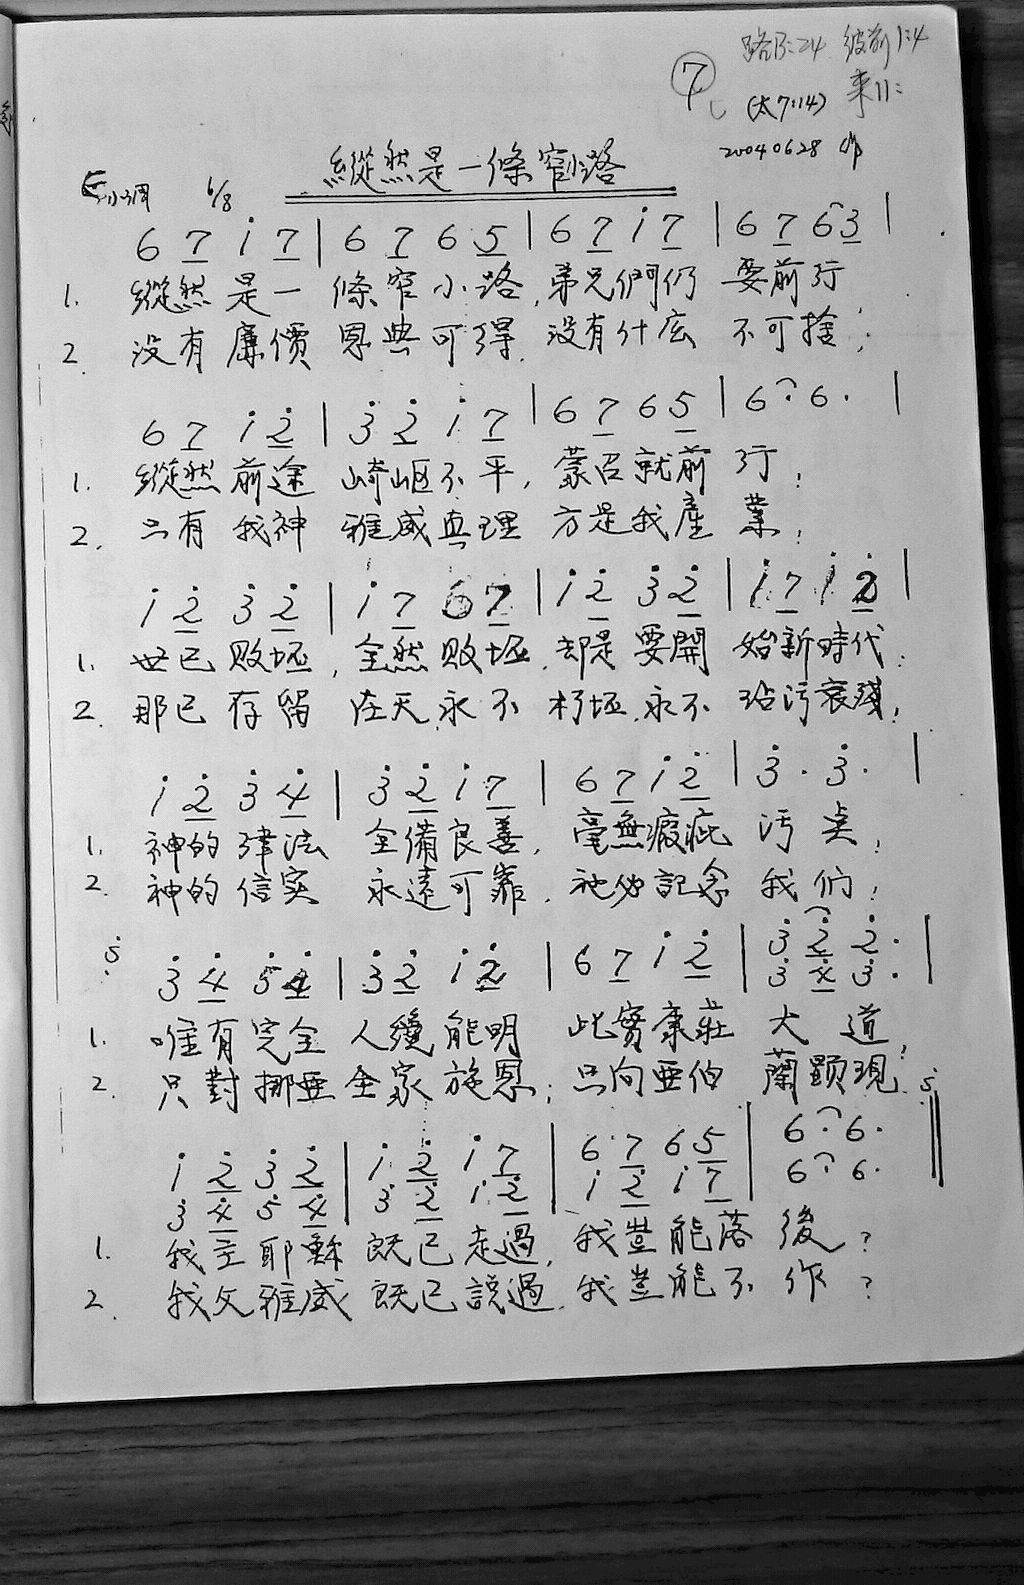 路13:24 彼前1:4
⑦ (太7:14) 来11:
20040628 作
縱然是一條窄小路
E小調 6/8
6 7 i 7 | 6 7 6 5 | 6 7 i 7 | 6 7 6 3 |
1. 縱然是一 條窄小路,弟兄們仍 要前行
2. 没有廉價 恩典可得,没有什広 不可捨;
6 7 i 2̇ | 3̇ 2̇ i 7 | 6 7 6 5 | 6· 6· |
1. 縱然前途 崎岖不平,蒙召就前 行;
2. 只有我神 雅威真理 方是我產 業;
i 2̇ 3̇ 2̇ | i 7 6 7 | i 2̇ 3̇ 2̇ | i 7 i 2̇ |
1. 世已敗坯,全然敗坯,却是要開 始新時代;
2. 那已存留 在天永不 朽坯,永不 玷污衰殘;
i 2̇ 3̇ 4̇ | 3̇ 2̇ i 7 | 6 7 i 2̇ | 3̇· 3̇· |
1. 神的律法 全備良善,毫無瘕疵 污点;
2. 神的信实 永遠可靠,祂必記念 我们;
3̇ 4̇ 5̇ 4̇ | 3̇ 2̇ i 2̇ | 6 7 i 2̇ | 3̇ 2̇ 2̇· |
3̇ 4̇ 3̇·
1. 唯有完全 人纔能明 此實康莊 大道,
2. 只對挪亜 全家施恩;只向亜伯 蘭顕現
i 2̇ 3̇ 2̇ | i 2̇ i 7 | 6 7 6 5 | 6· 6· ‖
3̇ 4̇ 5̇ 4̇ | 3̇ 2̇ i 2̇ | i 2̇ i 7 | 6· 6·
1. 我主耶穌 既已走過,我豈能落 後?
2. 我父雅威 既已説過,我豈能不 作?